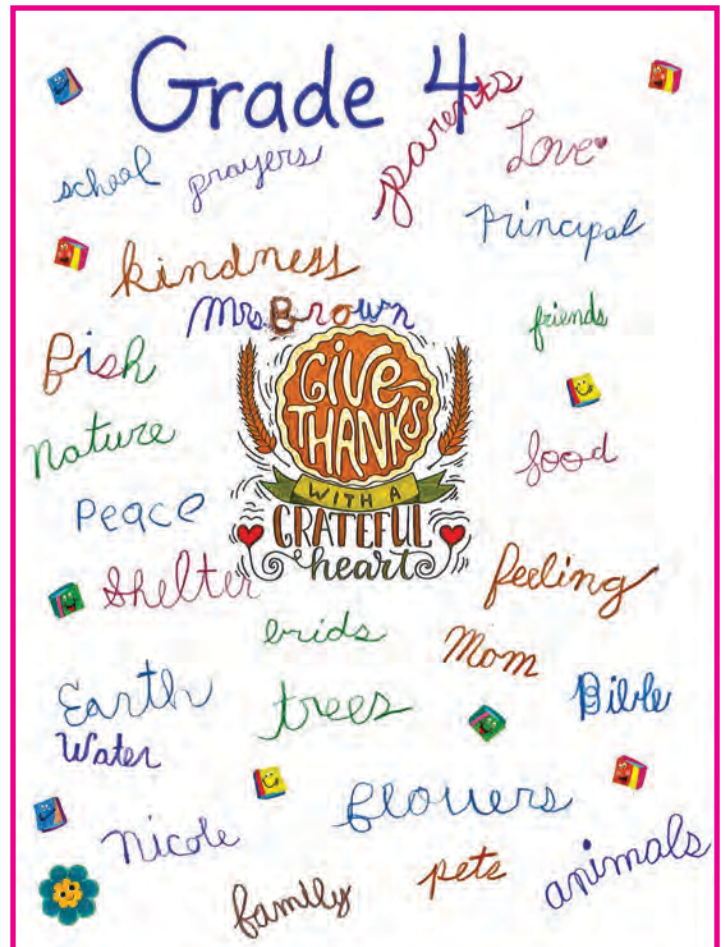 Grade 4
school prayers parents Love
Principal
kindness
Mrs. Brown
friends
fish
GIVE
THANKS
WITH A
GRATEFUL
heart
nature
food
Peace
Shelter
feeling
brids
Mom
Earth
trees
Bible
Water
flowers
Nicole
animals
pets
family